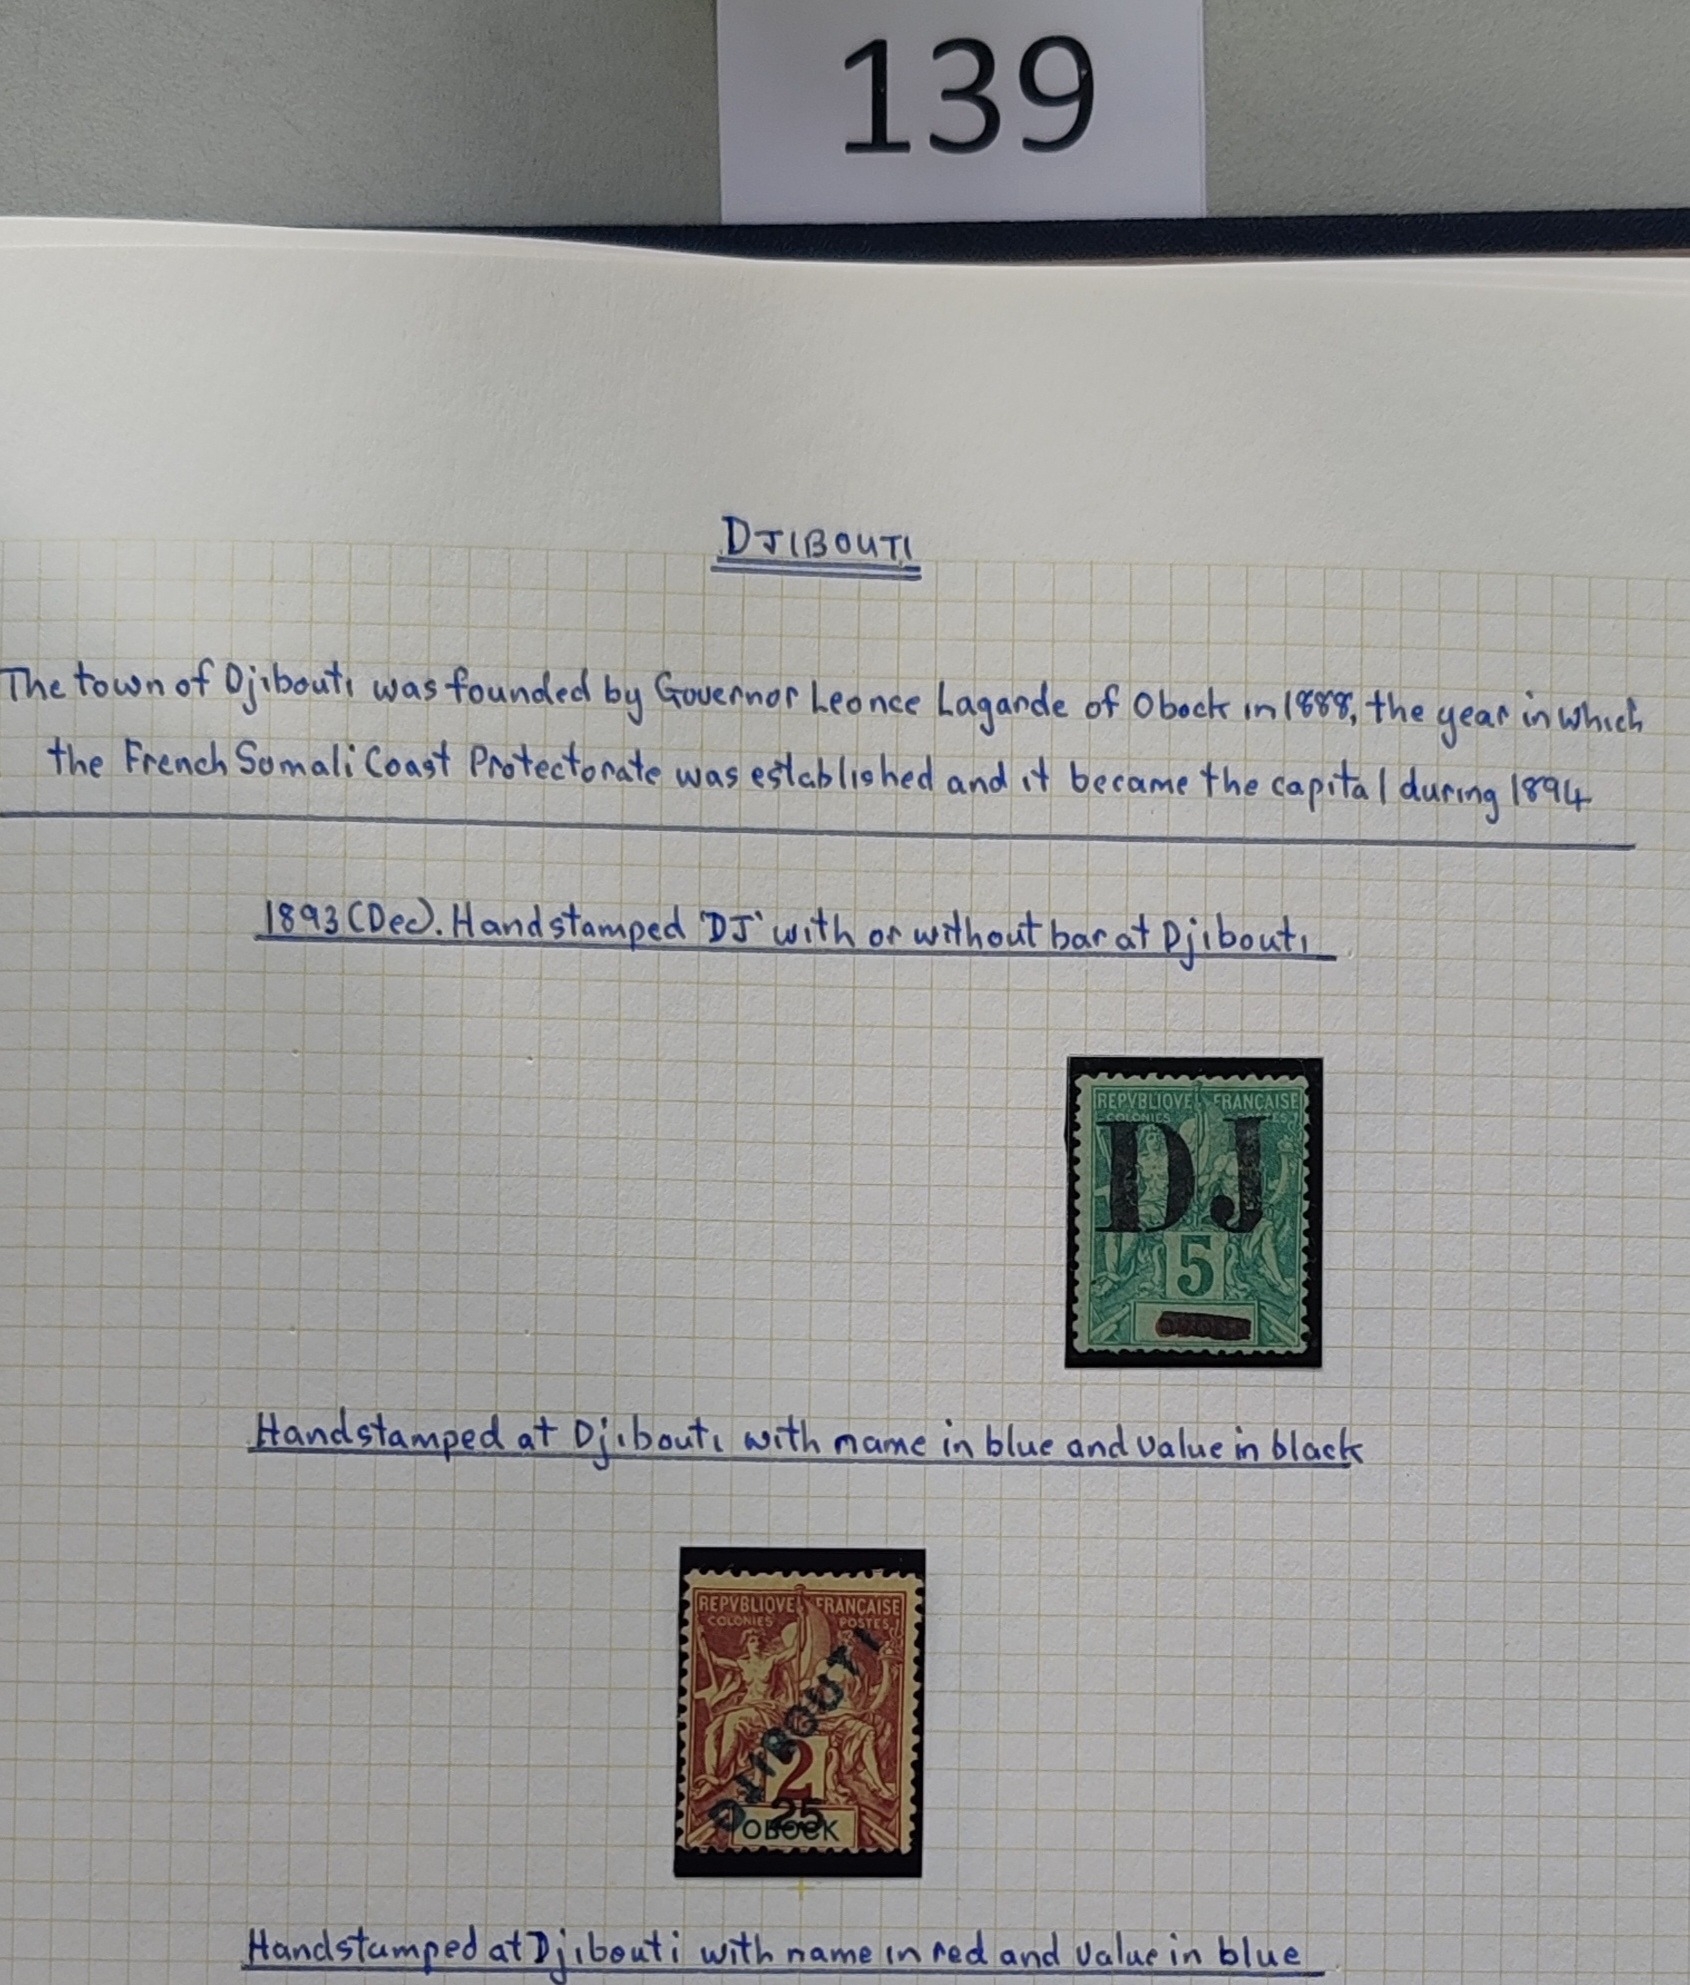 139
DJIBOUTI
The town of Djibouti was founded by Governor Leonce Lagarde of Obock in 1888, the year in which
the French Somali Coast Protectorate was established and it became the capital during 1894
1893 (Dec). Handstamped 'DJ' with or without bar at Djibouti
REPVBLIQVE FRANÇAISE
COLONIES
DJ
5
Handstamped at Djibouti with name in blue and value in black
REPVBLIQVE FRANÇAISE
COLONIES POSTES
DJIBOUTI
2
25
OBOCK
Handstamped at Djibouti with name in red and value in blue